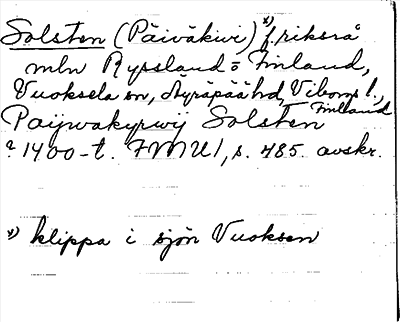 Solsten (Päiväkivi) x) f. riksrå
mln Ryssland o Finland,
Vuoksela sn, Äyräpää hd, Viborgs l.,
Finland
Paijwakyrwij Solsten
? 1400-t. FMU 1, s. 485. avskr.
x) klippa i sjön Vuoksen